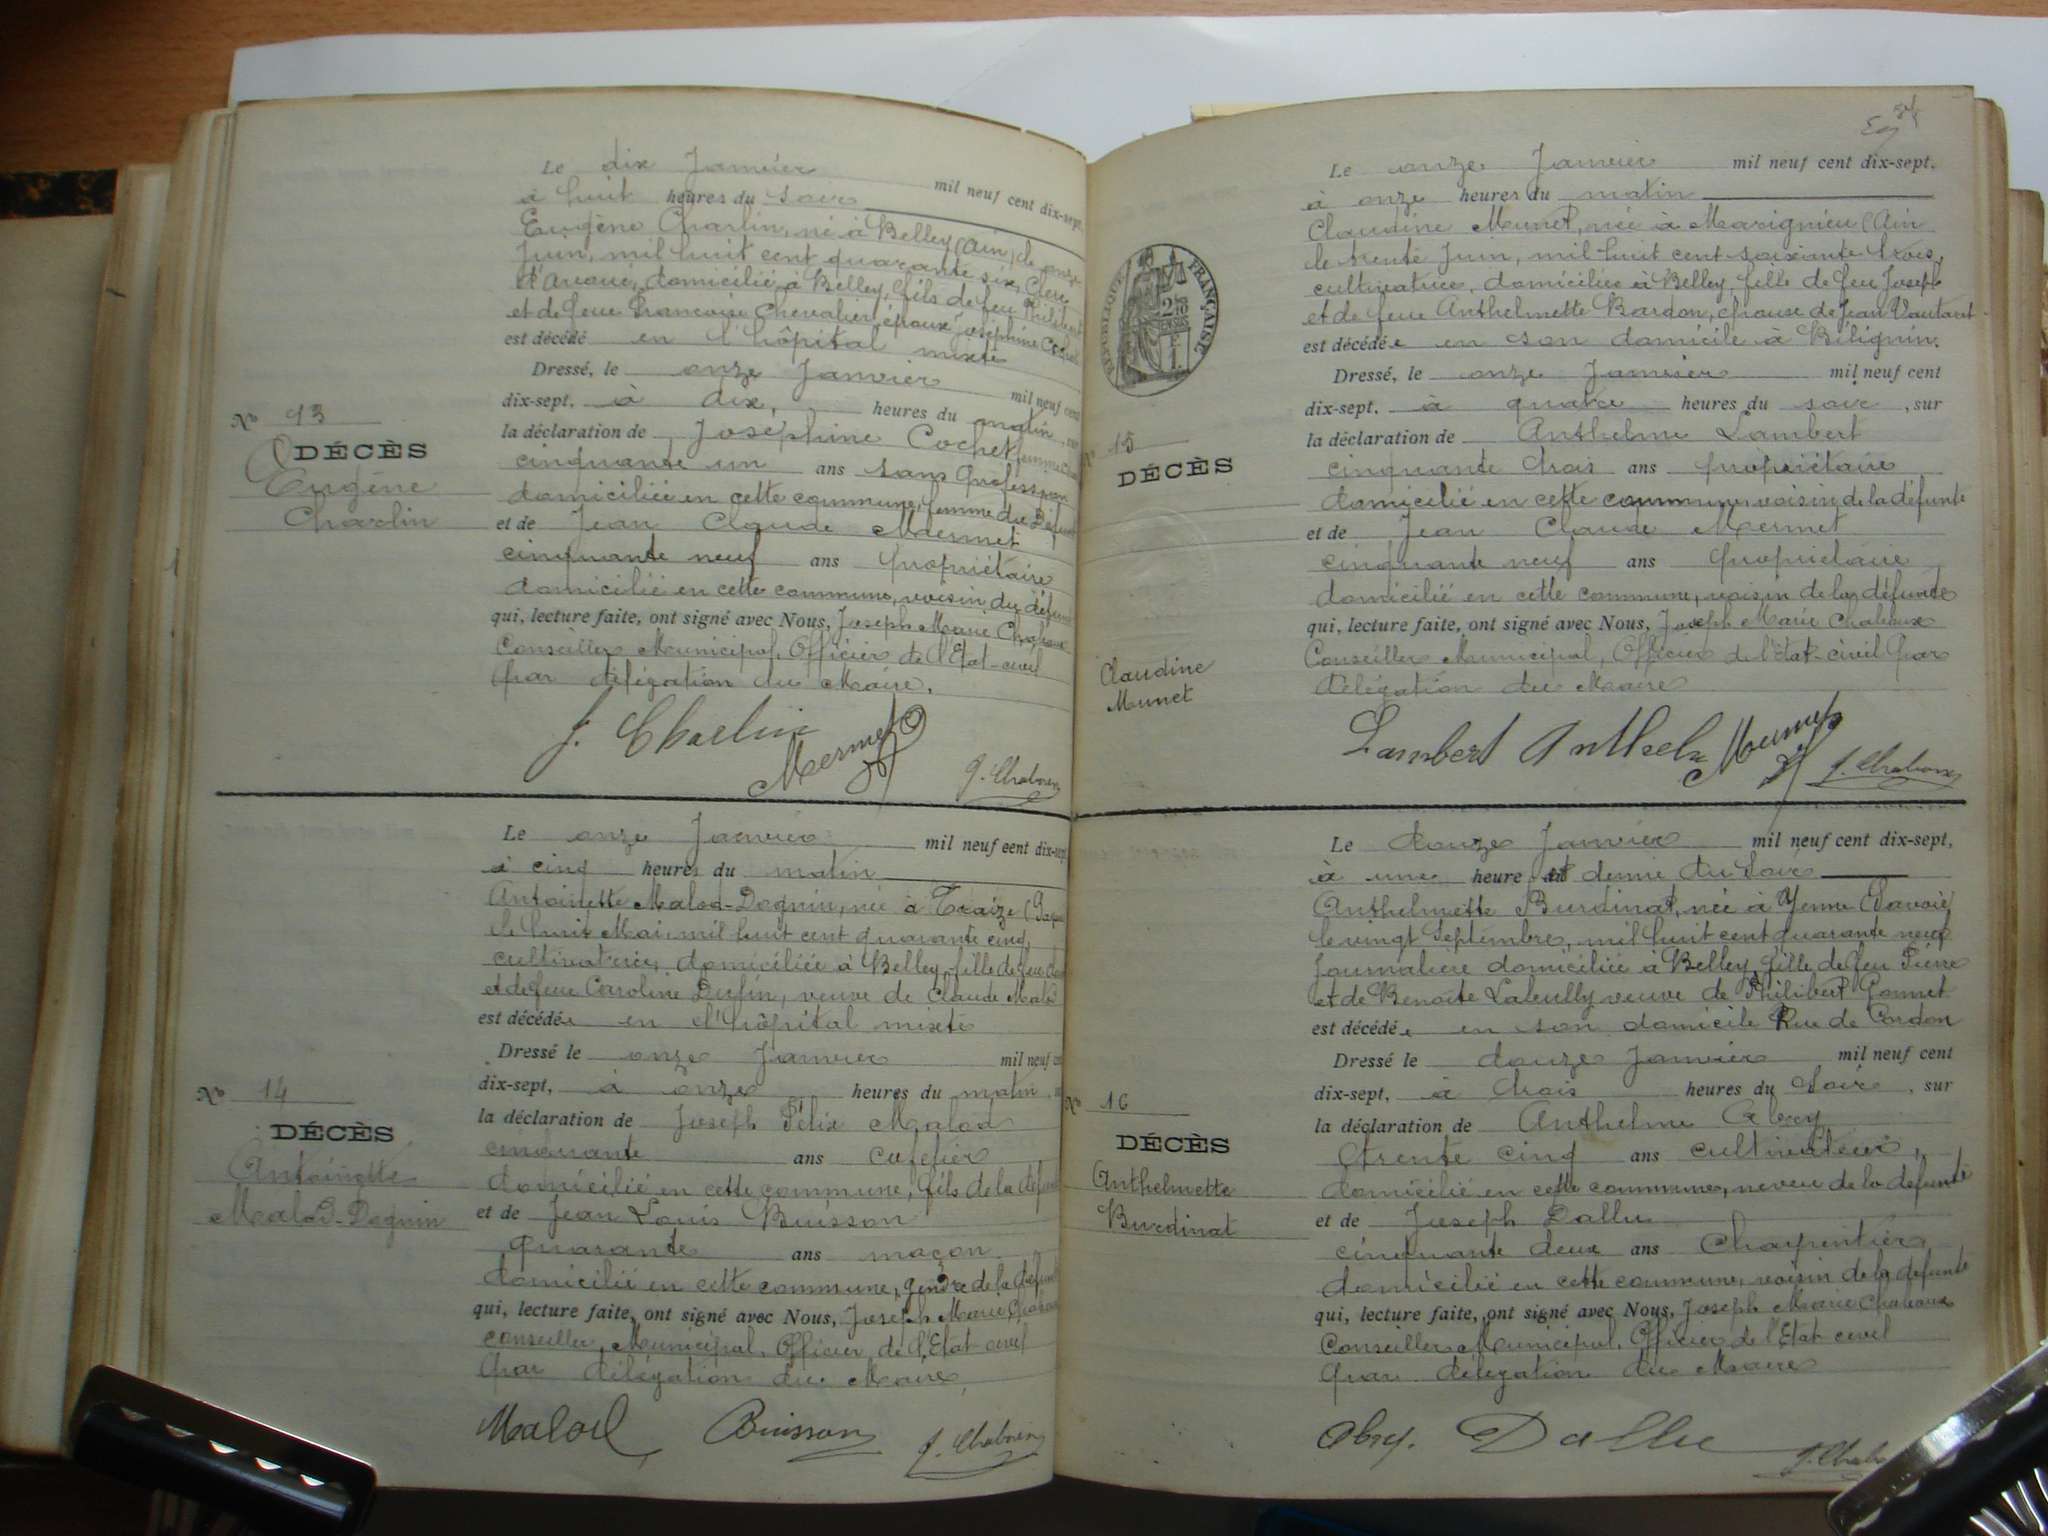 Le dix Janvier mil neuf cent dix-sept,
à huit heures du soir
Eugène Charlin, né à Belley (Ain) le onze
Juin, mil huit cent quarante six, Clerc
d'Avoué, domicilié à Belley, fils de feu Philibert
et de feue Françoise Chevalier, époux Joséphine Cochet
est décédé en l'hôpital mixte
Dressé, le onze Janvier mil neuf cent
dix-sept, à dix, heures du matin, sur
la déclaration de Joséphine Cochet femme
cinquante un ans sans profession
domiciliée en cette commune, femme du Défunt
et de Jean Claude Mermet
cinquante neuf ans propriétaire
domicilié en cette commune, voisin du défunt
qui, lecture faite, ont signé avec Nous, Joseph Marie
Conseiller Municipal, Officier de l'Etat-civil
par délégation du Maire.
No 13
DÉCÈS
Eugène
Charlin
J. Charlin
Mermet
Le onze Janvier mil neuf cent dix-sept
à cinq heures du matin
Antoinette Malod-Dognin, née à Traize
le huit Mai, mil huit cent quarante cinq,
cultivatrice, domiciliée à Belley, fille de feu
et de feue Caroline Dufin, veuve de Claude
est décédée en l'hôpital mixte
Dressé le onze Janvier mil neuf
dix-sept, à onze heures du matin
la déclaration de Joseph Félix Malod
cinquante ans cafetier
domicilié en cette commune, fils de la
et de Jean Louis Buisson
quarante ans maçon
domicilié en cette commune, gendre de la défunte
qui, lecture faite, ont signé avec Nous, Joseph Marie
conseiller Municipal, Officier de l'Etat civil
par délégation du Maire
No 14
DÉCÈS
Antoinette
Malod-Dognin
Malod Buisson
Le onze Janvier mil neuf cent dix-sept,
à onze heures du matin
Claudine Munet, née à Marignieu (Ain
le trente Juin, mil huit cent soixante trois,
cultivatrice, domiciliée à Belley, fille de feu Joseph
et de feue Anthelmette Bardon, épouse de Jean
est décédée en son domicile à Bélignin.
Dressé, le onze Janvier mil neuf cent
dix-sept, à quatre heures du soir, sur
la déclaration de Anthelme Lambert
cinquante trois ans propriétaire
domicilié en cette commune, voisin de la défunte
et de Jean Claude Mermet
cinquante neuf ans propriétaire
domicilié en cette commune, voisin de la défunte
qui, lecture faite, ont signé avec Nous, Joseph Marie
Conseiller Municipal, Officier de l'état-civil par
délégation du Maire
RÉPUBLIQUE FRANÇAISE
15
DÉCÈS
Claudine
Munet
Lambert Anthelme Mermet
Le douze Janvier mil neuf cent dix-sept,
à une heure et demie du soir
Anthelmette Burdinat, née à Yenne (Savoie)
le vingt Septembre, mil huit cent quarante neuf
Journalière domiciliée à Belley, fille de feu Pierre
et de Benoîte Labully veuve de Philibert Gonnet
est décédée en son domicile Rue de Cordon
Dressé le douze Janvier mil neuf cent
dix-sept, à trois heures du soir, sur
la déclaration de Anthelme Abry
trente cinq ans cultivateur,
domicilié en cette commune, neveu de la défunte
et de Joseph Dallu
cinquante deux ans Charpentier
domicilié en cette commune, voisin de la défunte
qui, lecture faite, ont signé avec Nous, Joseph Marie
Conseiller Municipal, Officier de l'Etat civil
par délégation du Maire
No 16
DÉCÈS
Anthelmette
Burdinat
Abry. Dallu